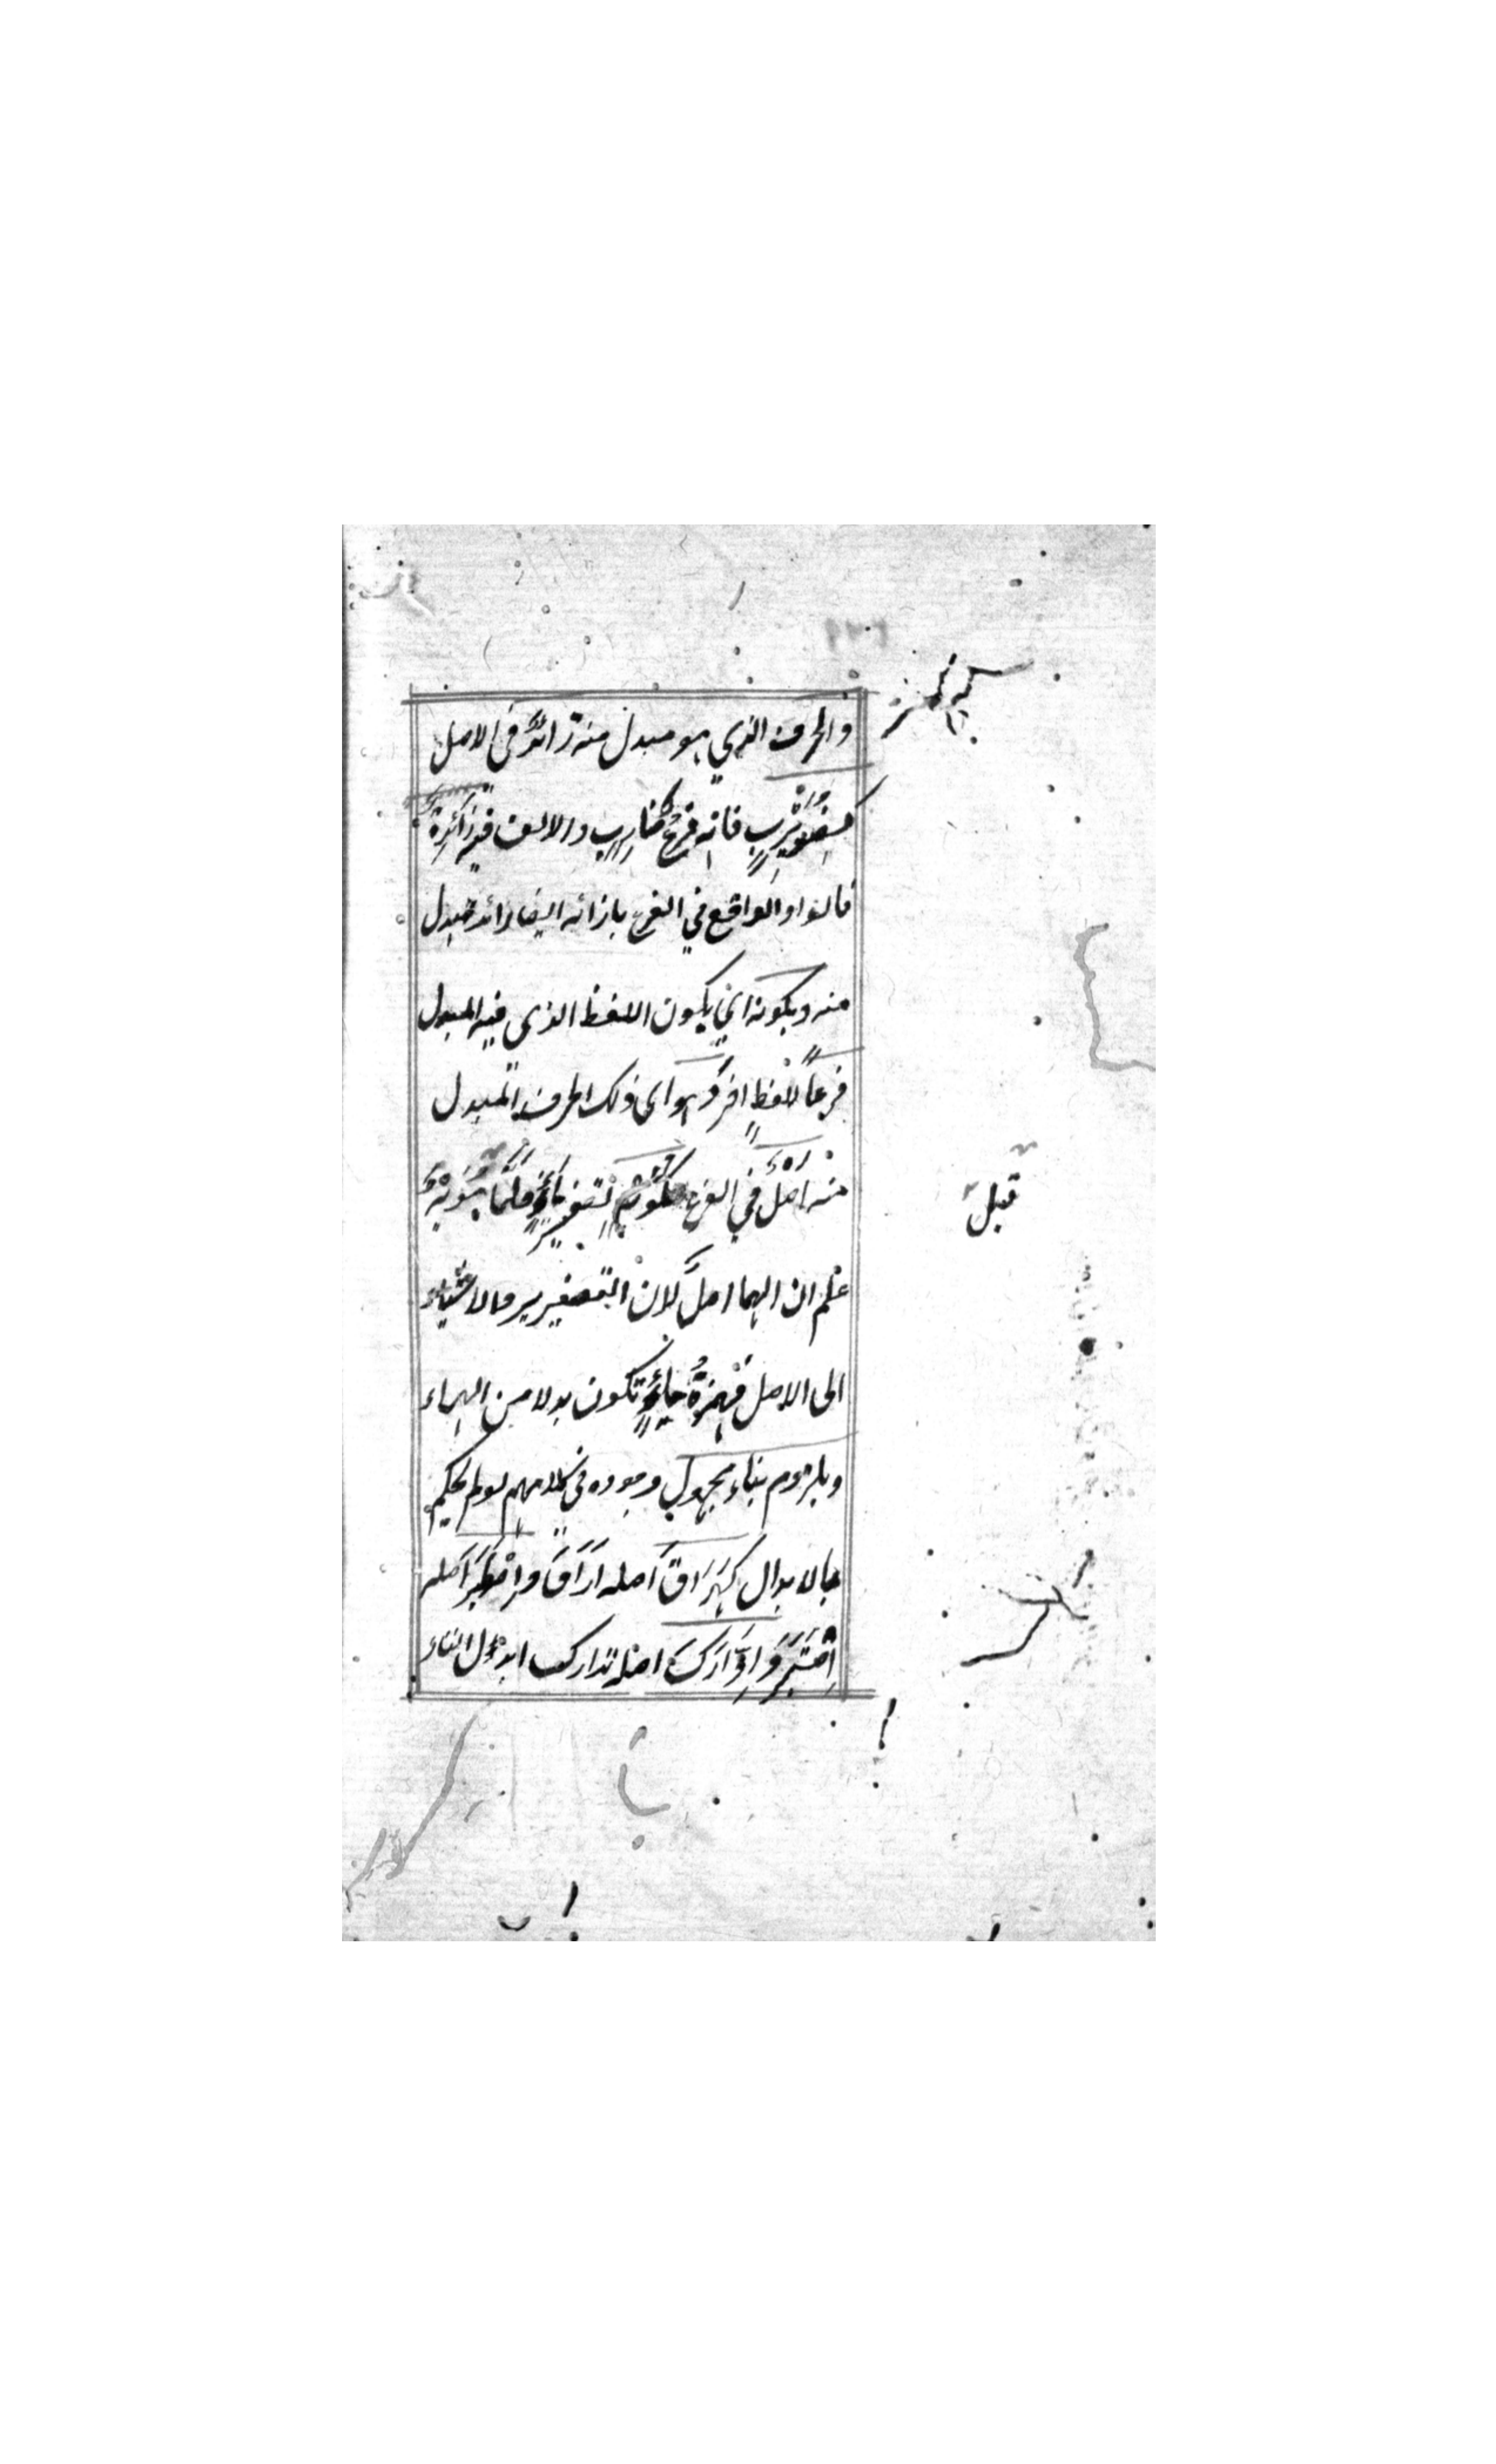 والحرف الذي هو مبدل منه زائدٌ في الاصل
كضُوَيْرِبٍ فانه فرعُ ضاربٍ والالف فيه زائدةٌ
فالواو الواقع في الفرع بازائه ايضا زائد مبدل
منه وبكونه اي يكون اللفظ الذي فيه المبدل
فرعاً للفظٍ اخر وهو اى ذلك الحرف المبدل
منه اصْلٌ في الفرع كمُوَيْهٍ تصغير ماءٍ فلمّا مُوَيْهٌ
علم ان الهاء اصلٌ لان التصغير يرد الاشياء
الى الاصل فهمزةُ ماءٍ تكون بدلا من الهاء
وبلزوم بناءٍ مجهولٍ وجوده في كلامهم لو لم يحكم
بالابدال كهَرَاقَ اصله اَرَاقَ واِصْطَبَرَ اصله
اِصْتَبَرَ واِدَّارَكَ اصله تدارك ابدل التاء
قبل